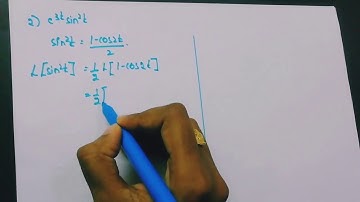 2) e^{3t} sin²t
sin²t = \frac{1-cos2t}{2}.
L[sin²t] = \frac{1}{2} L[1-cos2t]
= \frac{1}{2}[